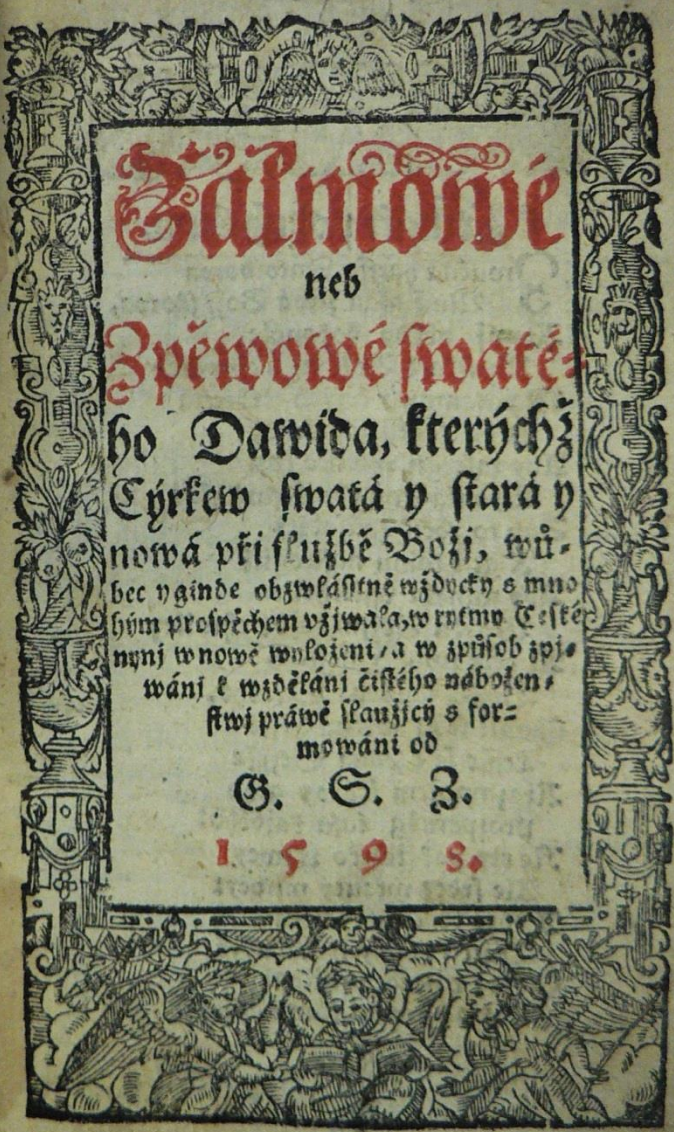 Žalmowé
neb
Zpěwowé swaté-
ho Dawida, kterýchž
Cýrkew swatá y stará y
nowá při službě Božj, wů-
bec y ginde obzwlásstně wždycky s mno
hým prospěchem vžjwala, w rytmy České
nynj w nowě wyloženi, a w způsob zpj-
wánj k wzdělánj čistého nábožen-
stwj práwě slaužjcý s for-
mowáni od
G. S. Z.
1 5 9 8.